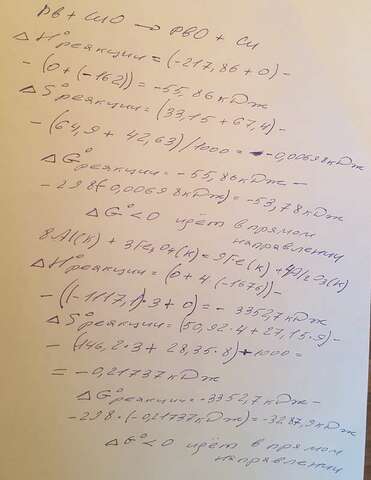 Pb + CuO → PbO + Cu
ΔH°реакции = (-217,86 + 0) -
- (0 + (-162)) = -55,86 кДж
ΔS°реакции = (33,15 + 67,4) -
- (64,9 + 42,63)/1000 = -0,00698 кДж
ΔG°реакции = -55,86 кДж -
- 298(-0,00698 кДж) = -53,78 кДж
ΔG° < 0 идёт в прямом
направлении
8Al(к) + 3Fe3O4(к) = 9Fe(к) + 4Al2O3(к)
ΔH°реакции = (0 + 4 (-1676)) -
- ((-1117,1)·3 + 0) = - 3352,7 кДж
ΔS°реакции = (50,92·4 + 27,15·9) -
- (146,2·3 + 28,35·8) ÷ 1000 =
= -0,21737 кДж
ΔG°реакции = -3352,7 кДж -
-298·(-0,21737 кДж) = -3287,9 кДж
ΔG° < 0 идёт в прямом
направлении